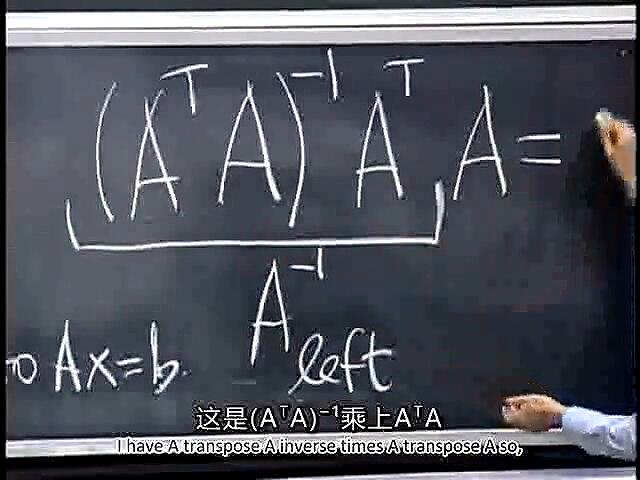 (AᵀA)⁻¹AᵀA=
A⁻¹left
to Ax=b.
这是(AᵀA)⁻¹乘上AᵀA
I have A transpose A inverse times A transpose A so,